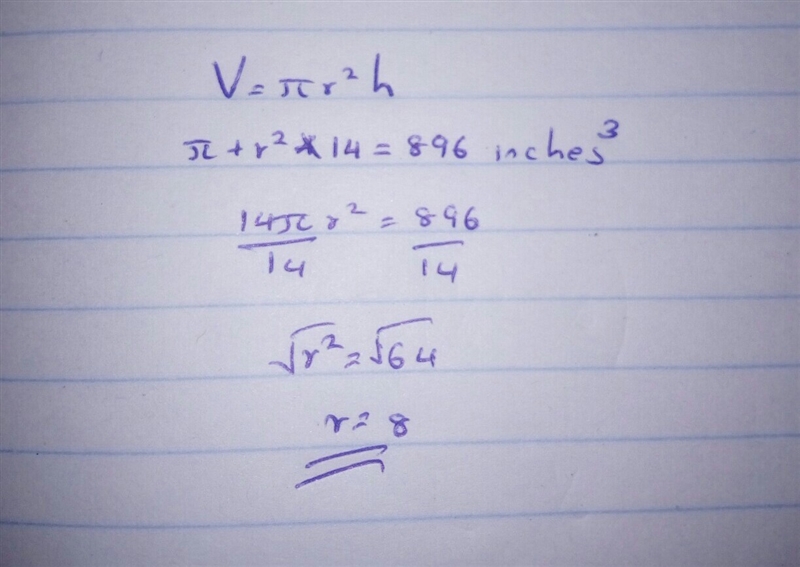 V = πr²h
π + r² * 14 = 896 inches³
14πr² = 896
14 14
√r² = √64
r = 8